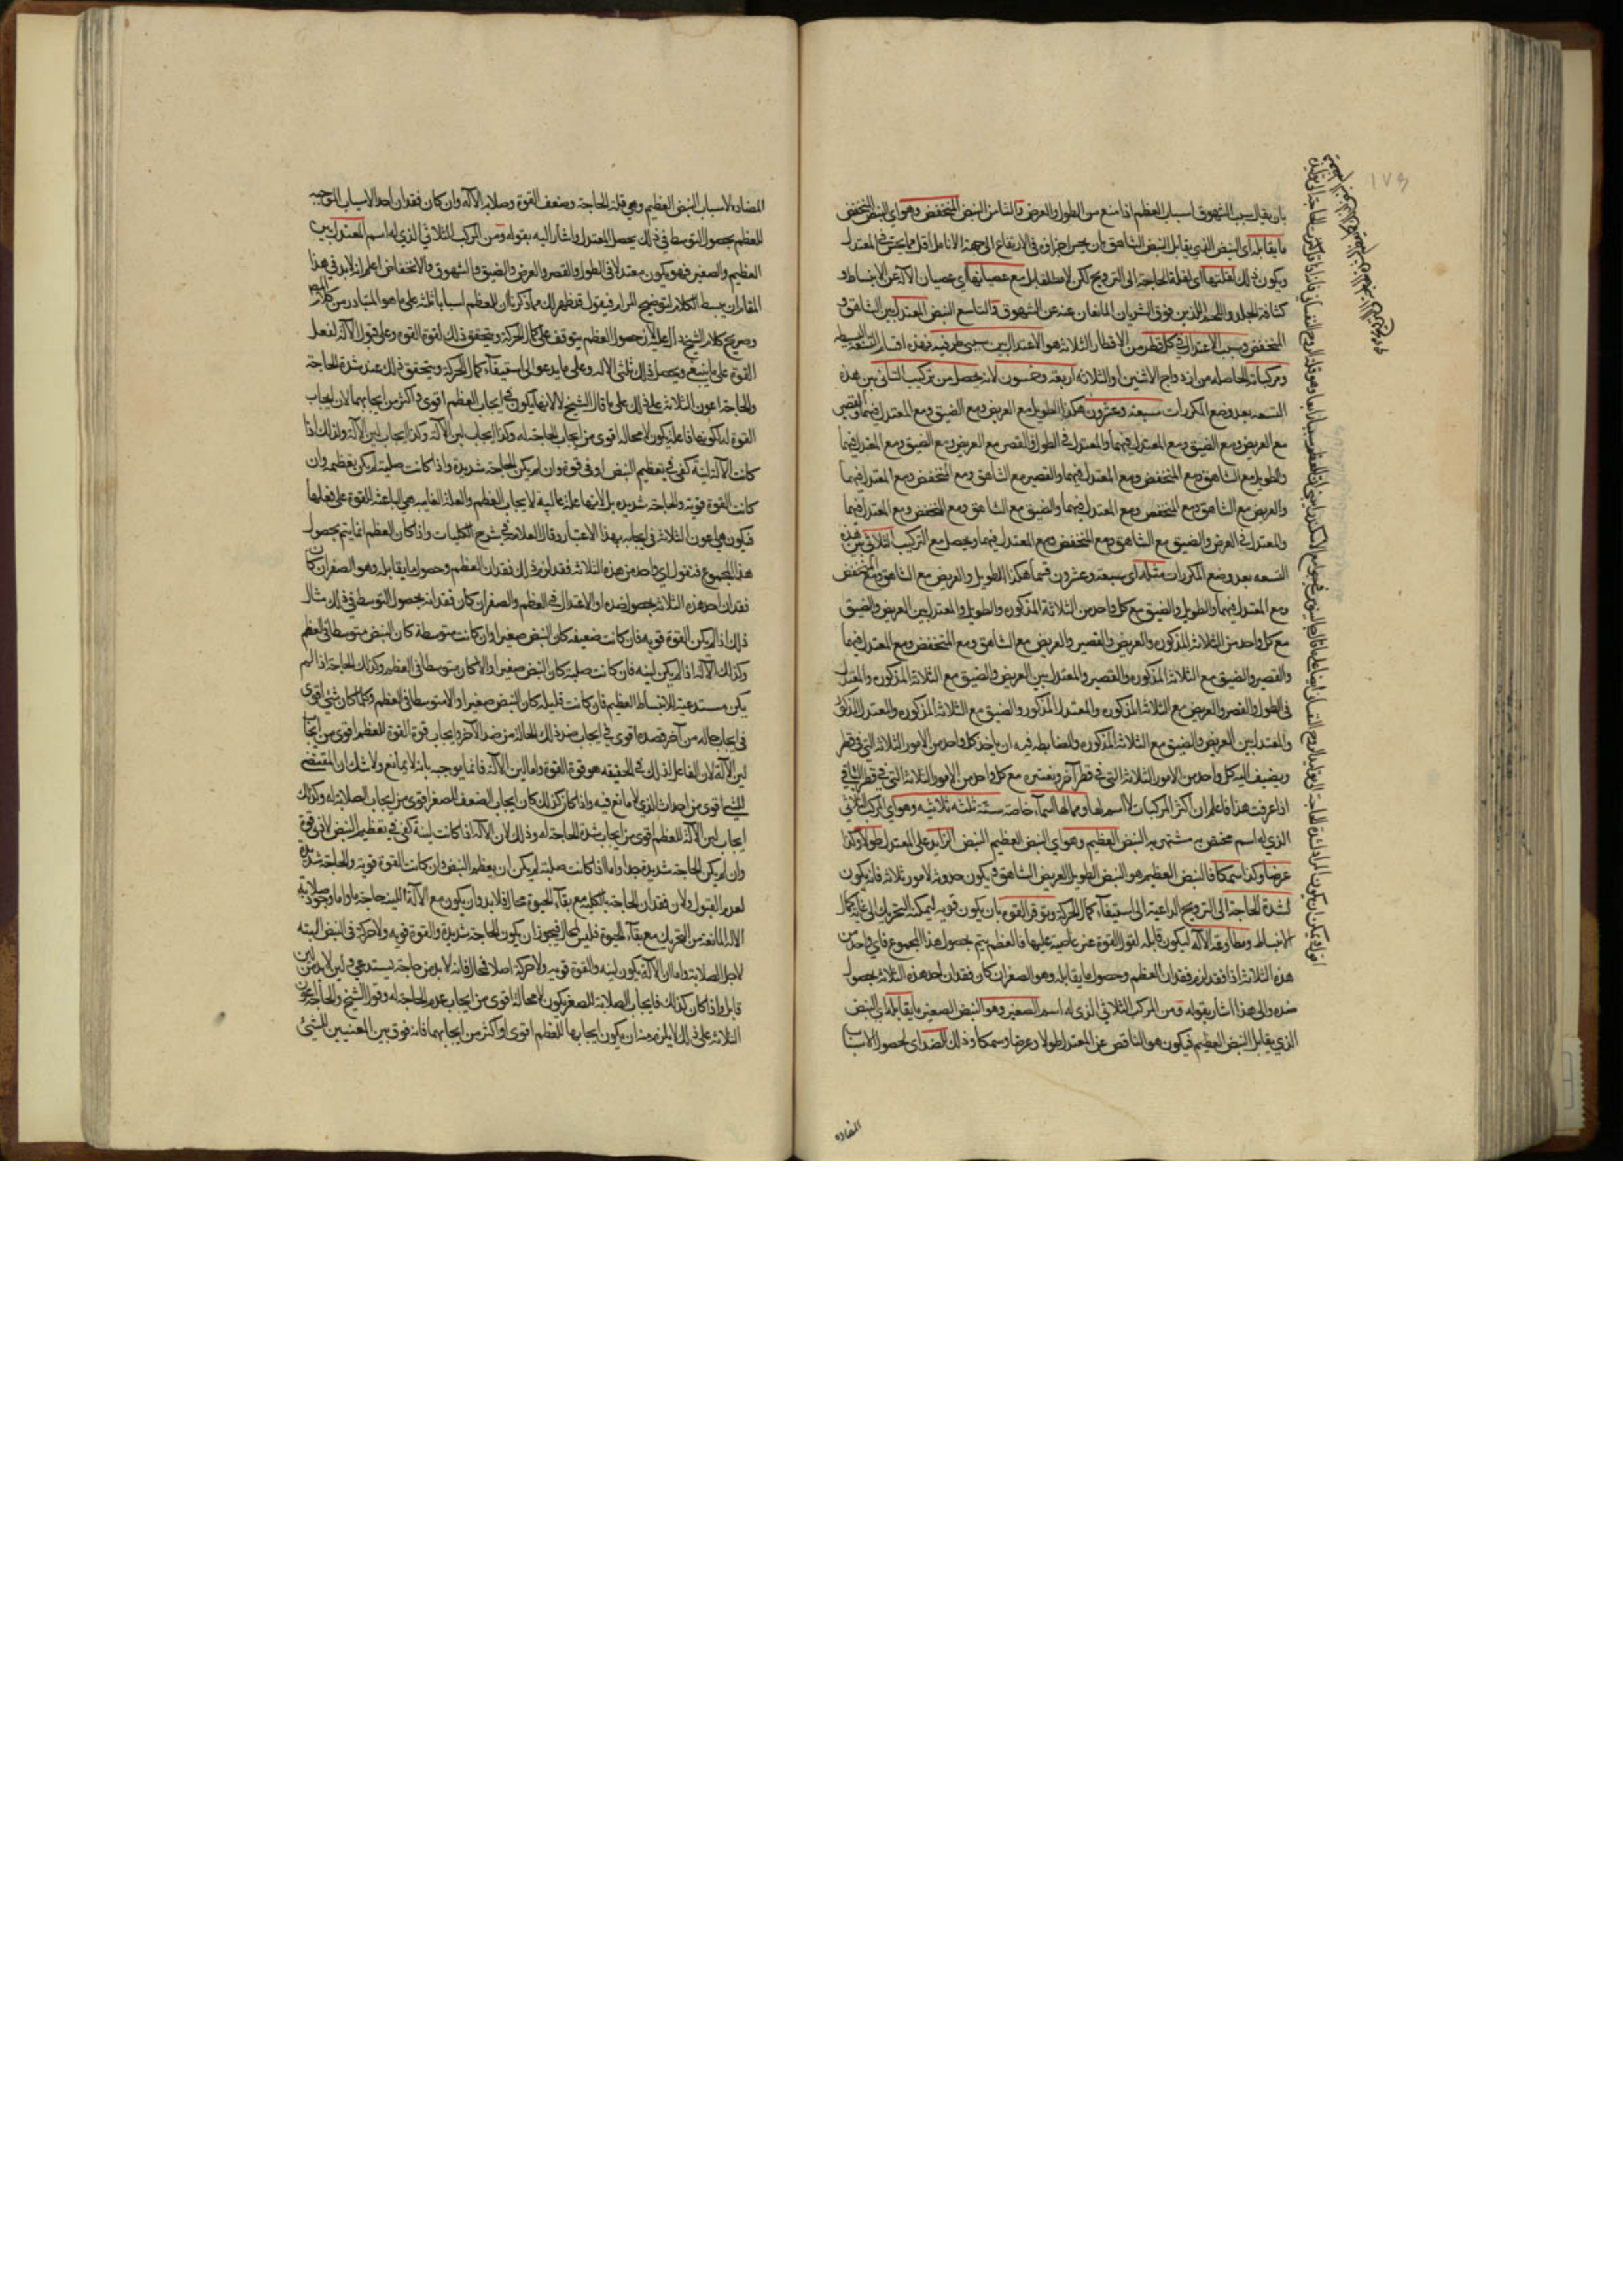 بان يقال سبب الشهوق اسباب العظم اذا منع من الطول والعرض والثامن النبض المنخفض وهو اي النبض المنخفض
ما يقابله اي النبض الذي يقابل النبض الشاهق بان يحس اجزاؤه في الارتفاع الى جهة الانامل اقل مما يحس في المعتدل
ويكون ذلك لقلتها اي لقلة الحاجة الى الترويح لكن لا مطلقا بل مع عصيانها اي عصيان الالة عن الانبساط و
كثافة الجلد واللحم الذين فوق الشريان المانعان عنه عن الشهوق والتاسع النبض المعتدل بين الشاهق و
المنخفض وسبب الاعتدال في كل قطر من الاقطار الثلاثة هو الاعتدال بين سببي طرفيه فهذه اقسام التسعة البسيطة
ومركباته الحاصلة من ازدواج الاثنين او الثلاثة اربعة وخمسون لانه يحصل من تركيب الثنائي بين هذه
التسعة بعد وضع المكررات سبعة وعشرون هكذا الطويل مع العريض ومع الضيق ومع المعتدل فيهما والقصير
مع العريض ومع الضيق ومع المعتدل فيهما والمعتدل في الطول والقصر مع العريض ومع الضيق ومع المعتدل فيهما
والطويل مع الشاهق ومع المنخفض ومع المعتدل فيهما والقصير مع الشاهق ومع المنخفض ومع المعتدل فيهما
والعريض مع الشاهق ومع المنخفض ومع المعتدل فيهما والضيق مع الشاهق ومع المنخفض ومع المعتدل فيهما
والمعتدل في العرض والضيق مع الشاهق ومع المنخفض ومع المعتدل فيهما ويحصل مع التركيب الثلاثي بين هذه
التسعة بعد وضع المكررات مثله اي سبعة وعشرون قسما هكذا الطويل والعريض مع الشاهق ومع المنخفض
ومع المعتدل فيهما والطويل والضيق مع كل واحد من الثلاثة المذكورة والطويل والمعتدل بين العريض والضيق
مع كل واحد من الثلاثة المذكورة والعريض والقصير والعريض مع الشاهق ومع المنخفض ومع المعتدل فيهما
والقصير والضيق مع الثلاثة المذكورة والقصير والمعتدل بين العريض والضيق مع الثلاثة المذكورة والمعتدل
في الطول والقصر والعريض مع الثلاثة المذكورة والمعتدل المذكور والضيق مع الثلاثة المذكورة والمعتدل المذكور
والمعتدل بين العريض والضيق مع الثلاثة المذكورة والضابطة فيه ان ياخذ كل واحد من الامور الثلاثة التي في قطر
ويضيف اليه كل واحد من الامور الثلاثة التي في قطر آخر ويعتبره مع كل واحد من الامور الثلاثة التي في قطر الباقي
اذا عرفت هذا فاعلم ان اكثر المركبات لا اسم لها ومما لها اسماء خاصة ستة ثلثة ثلاثية وهو اي المركب الثلاثي
الذي له اسم مختص به مشتهر به النبض العظيم وهو اي النبض العظيم النبض الزايد على المعتدل طولا وكذا
عرضا وكذا سمكا فالنبض العظيم هو النبض الطويل العريض الشاهق ويكون حدوثه لامور ثلاثة فانه يكون
لشدة الحاجة الى الترويح الداعية الى استيفاء كمال الحركة وتوفر القوة بان يكون قوية ليمكنه التحريك الى غاية كمال
الانبساط ومطاوعة الالة ليكون قابلة لقول القوة غير عاصية عليها فالعظم يتم حصول هذا المجموع فاي واحد من
هذه الثلاثة اذا فقد لزم فقدان العظم وحصول ما يقابله وهو الصغر ان كان فقدان احد هذه الثلاثة بحصول
ضده والى هذا اشار بقوله ومن المركب الثلاثي الذي له اسم الصغير وهو النبض الصغير ما يقابله اي النبض
الذي يقابل النبض العظيم فيكون هو الناقص عن المعتدل طولا وعرضا وسمكا وذلك لضد اي لحصول الاسباب
المضاده
المضادة لاسباب النبض العظيم وهي قلة الحاجة وضعف القوة وصلابة الآلة وان كان فقدان احد الاسباب الموجبة
للعظم بحصول التوسط في ذلك يحصل المعتدل واشار اليه بقوله ومن المركب الثلاثي الذي له اسم المعتدل بين
العظيم والصغير فهو يكون معتدلا في الطول والقصر والعرض والضيق والشهوق والانخفاض اعلم انه لابد في هذا
المقام ان يبسط الكلام لتوضيح المرام فيقول قد ظهر لك مما ذكرنا ان للعظم اسبابا ثلثة على ما هو المتبادر من كلام
وصريح كلام الشيخ دال عليه لان حصول العظم يتوقف على كمال الحركة ويتحقق ذلك لقوة القوة وعلى قبول الآلة لفعل
القوة على ما ينبغي ويحصل ذلك بلين الالة وعلى ما يدعو الى استيفاء كمال الحركة ويتحقق ذلك عند شدة الحاجة
والحاجة اعون الثلاثة على ذلك على ما قال الشيخ لا لانها يكون في ايجاب العظم اقوى واكثر من ايجابهما لان ايجاب
القوة له لكونها فاعلية يكون لا محالة اقوى من ايجاب الحاجة له وكذا ايجاب لين الآلة وكذا ايجاب لين الآلة ولذلك اذا
كانت الآلة لينة كفى في تعظيم النبض ادنى قوة وان لم يكن الحاجة شديدة واذا كانت صلبة لم يكن تعظيمه وان
كانت القوة قوية والحاجة شديدة بل لانها علة غائية لايجاب العظم والعلة الغائية هي الباعثة للقوة على فعلها
فيكون هي اعون الثلاث في ايجابه بهذا الاعتبار وقال العلامة في شرح الكليات واذا كان العظم انما يتم بحصول
هذا المجموع فنقول اي واحد من هذه الثلاثة فقد لزم ذلك فقدان العظم وحصول ما يقابله وهو الصغر ان كان
فقدان احد هذه الثلاثة بحصول ضده او الاعتدال في العظم والصغر ان كان فقدانه بحصول التوسط في ذلك مثال
ذلك اذا لم يكن القوة قوية فان كانت ضعيفة كان النبض صغيرا وان كانت متوسطة كان النبض متوسطا في العظم
وكذلك الآلة اذا لم يكن لينة فان كانت صلبة كان النبض صغيرا والا كان متوسطا في العظم وكذلك الحاجة اذا لم
يكن مستدعية للانبساط العظيم فان كانت قليلة كان النبض صغيرا والا متوسطا في العظم وكلما كان شيء اقوى
في ايجاب حالة من آخر فضده اقوى في ايجاب ضد تلك الحالة من ضد الآخر وايجاب قوة القوة للعظم اقوى من ايجاب
لين الآلة لان الفاعل لذلك في الحقيقة هو قوة القوة واما لين الآلة فانما يوجبه بانه لا يمانع ولا شك ان المقتضي
للشيء اقوى من احداث الذي لا مانع فيه واذا كان كذلك كان ايجاب الضعف للصغر اقوى من ايجاب الصلابة له وكذلك
ايجاب لين الآلة للعظم اقوى من ايجاب شدة الحاجة له وذلك لان الآلة اذا كانت لينة كفى في تعظيم النبض لادنى قوة
وان لم يكن الحاجة شديدة جدا واما اذا كانت صلبة لم يكن ان يعظم النبض وان كانت القوة قوية والحاجة شديدة
لعدم القبول ولان فقدان الحاجة بالكلية مع بقاء الحيوة محال فلابد وان يكون مع الآلة اللينة حاجة ما واما وجود صلابة
الالة المانعة من التحريك مع بقاء الحيوة فليس بمحال فيجوز ان يكون الحاجة شديدة والقوة قوية ولا حركة في النبض البتة
لاجل الصلابة واما ان الآلة يكون لينة والقوة قوية ولا حركة اصلا فمحال فانه لابد من حاجة يستدعي
قابل واذا كان كذلك فايجاب الصلابة للصغر يكون لا محالة اقوى من ايجاب عدم الحاجة له وقول الشيخ والحاجة اعون
الثلاثة على ذلك لا يلزم منه ان يكون ايجابها للعظم اقوى او اكثر من ايجابهما فانه فرق بين المعنيين للشيء